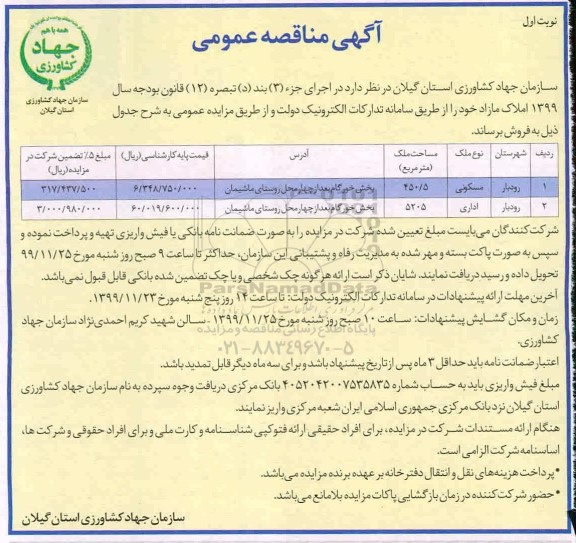 نوبت اول
آگهی مناقصه عمومی
همه با هم
جهاد
کشاورزی
سازمان جهاد کشاورزی
استان گیلان
سازمان جهاد کشاورزی استان گیلان در نظر دارد در اجرای جزء (۳) بند (د) تبصره (۱۲) قانون بودجه سال
۱۳۹۹ املاک مازاد خود را از طریق سامانه تدارکات الکترونیک دولت و از طریق مزایده عمومی به شرح جدول
ذیل به فروش برساند.
ردیف شهرستان نوع ملک مساحت ملک (متر مربع) آدرس قیمت پایه کارشناسی (ریال) مبلغ ۵٪ تضمین شرکت در مزایده (ریال)
۱ رودبار مسکونی ۴۵۰/۵ بخش خورگام بعد از چهار محل روستای ماشیمان ۶/۳۴۸/۷۵۰/۰۰۰ ۳۱۷/۴۳۷/۵۰۰
۲ رودبار اداری ۵۲۰۵ بخش خورگام بعد از چهار محل روستای ماشیمان ۶۰/۰۱۹/۶۰۰/۰۰۰ ۳/۰۰۰/۹۸۰/۰۰۰
شرکت کنندگان می‌بایست مبلغ تعیین شده شرکت در مزایده را به صورت ضمانت نامه بانکی یا فیش واریزی تهیه و پرداخت نموده و
سپس به صورت پاکت بسته و مهر شده به مدیریت رفاه و پشتیبانی این سازمان، حداکثر تا ساعت ۹ صبح روز شنبه مورخ ۹۹/۱۱/۲۵
تحویل داده و رسید دریافت نمایند. شایان ذکر است ارائه هر گونه چک شخصی و یا چک تضمین شده بانکی قابل قبول نمی‌باشد.
آخرین مهلت ارائه پیشنهادات در سامانه تدارکات الکترونیک دولت: تا ساعت ۱۴ روز پنج شنبه مورخ ۱۳۹۹/۱۱/۲۳.
زمان و مکان گشایش پیشنهادات: ساعت ۱۰ صبح روز شنبه مورخ ۱۳۹۹/۱۱/۲۵ - سالن شهید کریم احمدی‌نژاد سازمان جهاد
کشاورزی.
ParsNamadData
پایگاه اطلاع رسانی مناقصه و مزایده
۰۲۱-۸۸۳۴۹۶۷۰-۵
اعتبار ضمانت نامه باید حداقل ۳ ماه پس از تاریخ پیشنهاد باشد و برای سه ماه دیگر قابل تمدید باشد.
مبلغ فیش واریزی باید به حساب شماره ۴۰۵۲۰۴۲۰۰۷۵۳۵۸۳۵ بانک مرکزی دریافت وجوه سپرده به نام سازمان جهاد کشاورزی
استان گیلان نزد بانک مرکزی جمهوری اسلامی ایران شعبه مرکزی واریز نمایند.
هنگام ارائه مستندات شرکت در مزایده، برای افراد حقیقی ارائه فتوکپی شناسنامه و کارت ملی و برای افراد حقوقی و شرکت ها،
اساسنامه شرکت الزامی است.
*پرداخت هزینه‌های نقل و انتقال دفترخانه بر عهده برنده مزایده می‌باشد.
*حضور شرکت کننده در زمان بازگشایی پاکات مزایده بلامانع می‌باشد.
سازمان جهاد کشاورزی استان گیلان